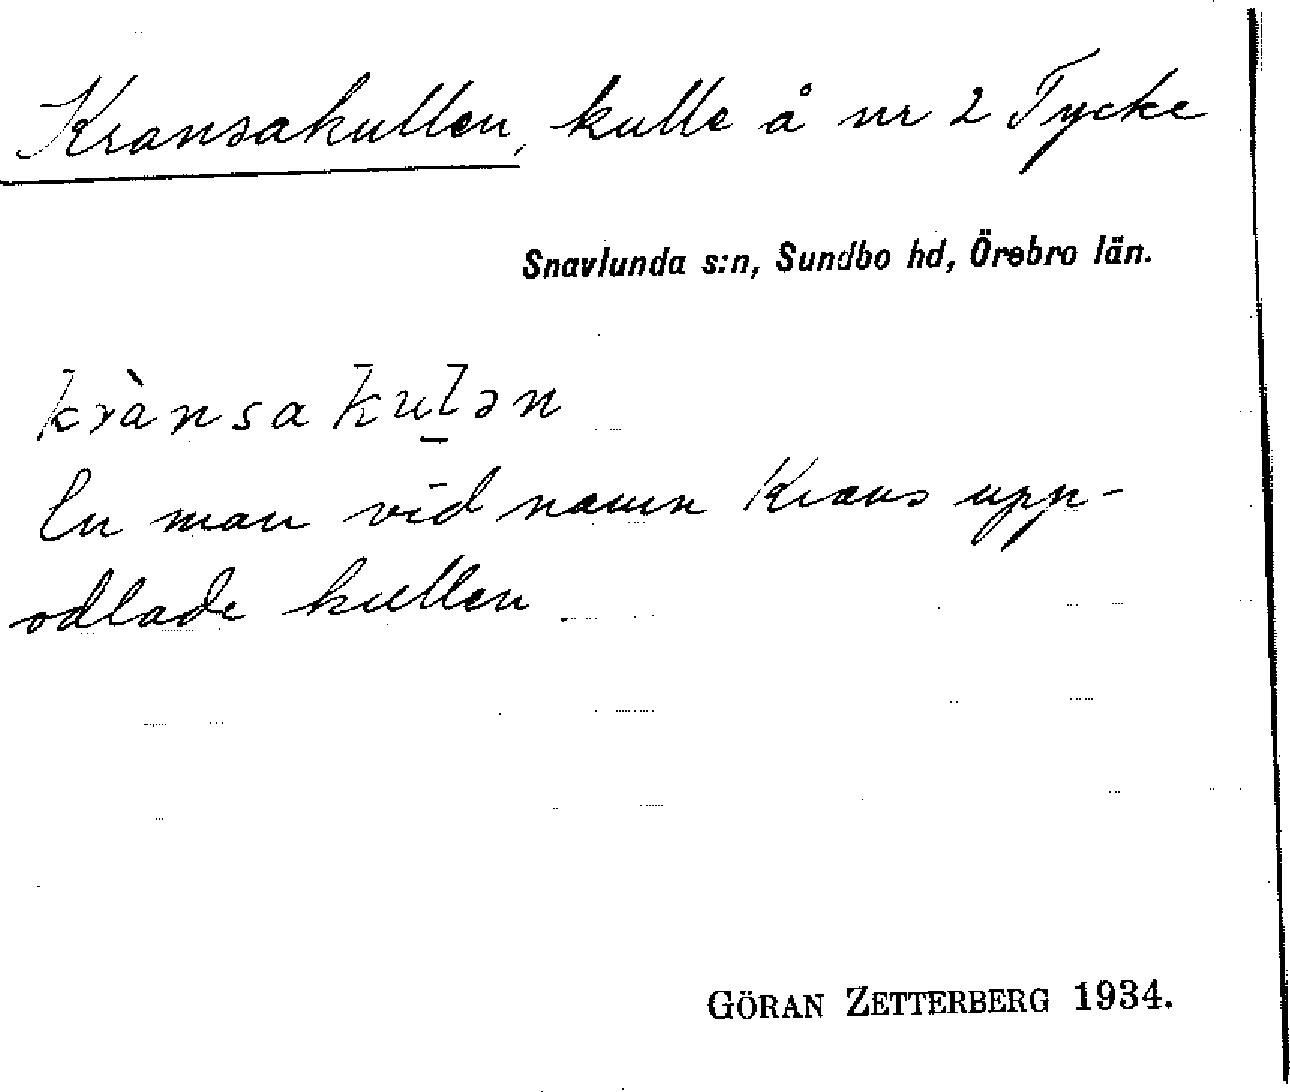 Kransakullen, kulle å nr 2 Tycke
Snavlunda s:n, Sundbo hd, Örebro län.
krànsakulən
En man vid namn Krans upp-
odlade kullen
GÖRAN ZETTERBERG 1934.